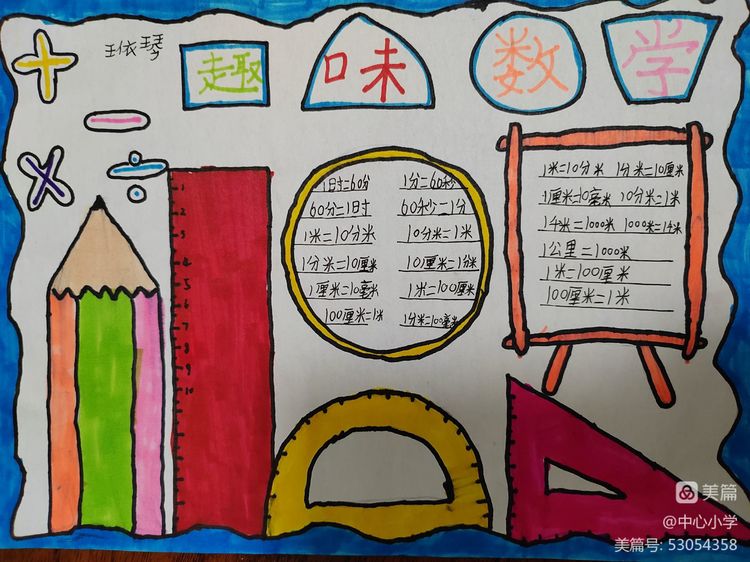 趣味数学
+
−
×
÷
1
2
3
4
5
6
7
8
9
10
1时=60分 1分=60秒
60分=1时 60秒=1分
1米=10分米 10分米=1米
1分米=10厘米 10厘米=1分米
1厘米=10毫米 1米=100厘米
100厘米=1米 1分米=100毫米
1米=10分米 1分米=10厘米
1厘米=10毫米 10分米=1米
1千米=1000米 1000米=1千米
1公里=1000米
1米=100厘米
100厘米=1米
美篇
@中心小学
美篇号: 53054358